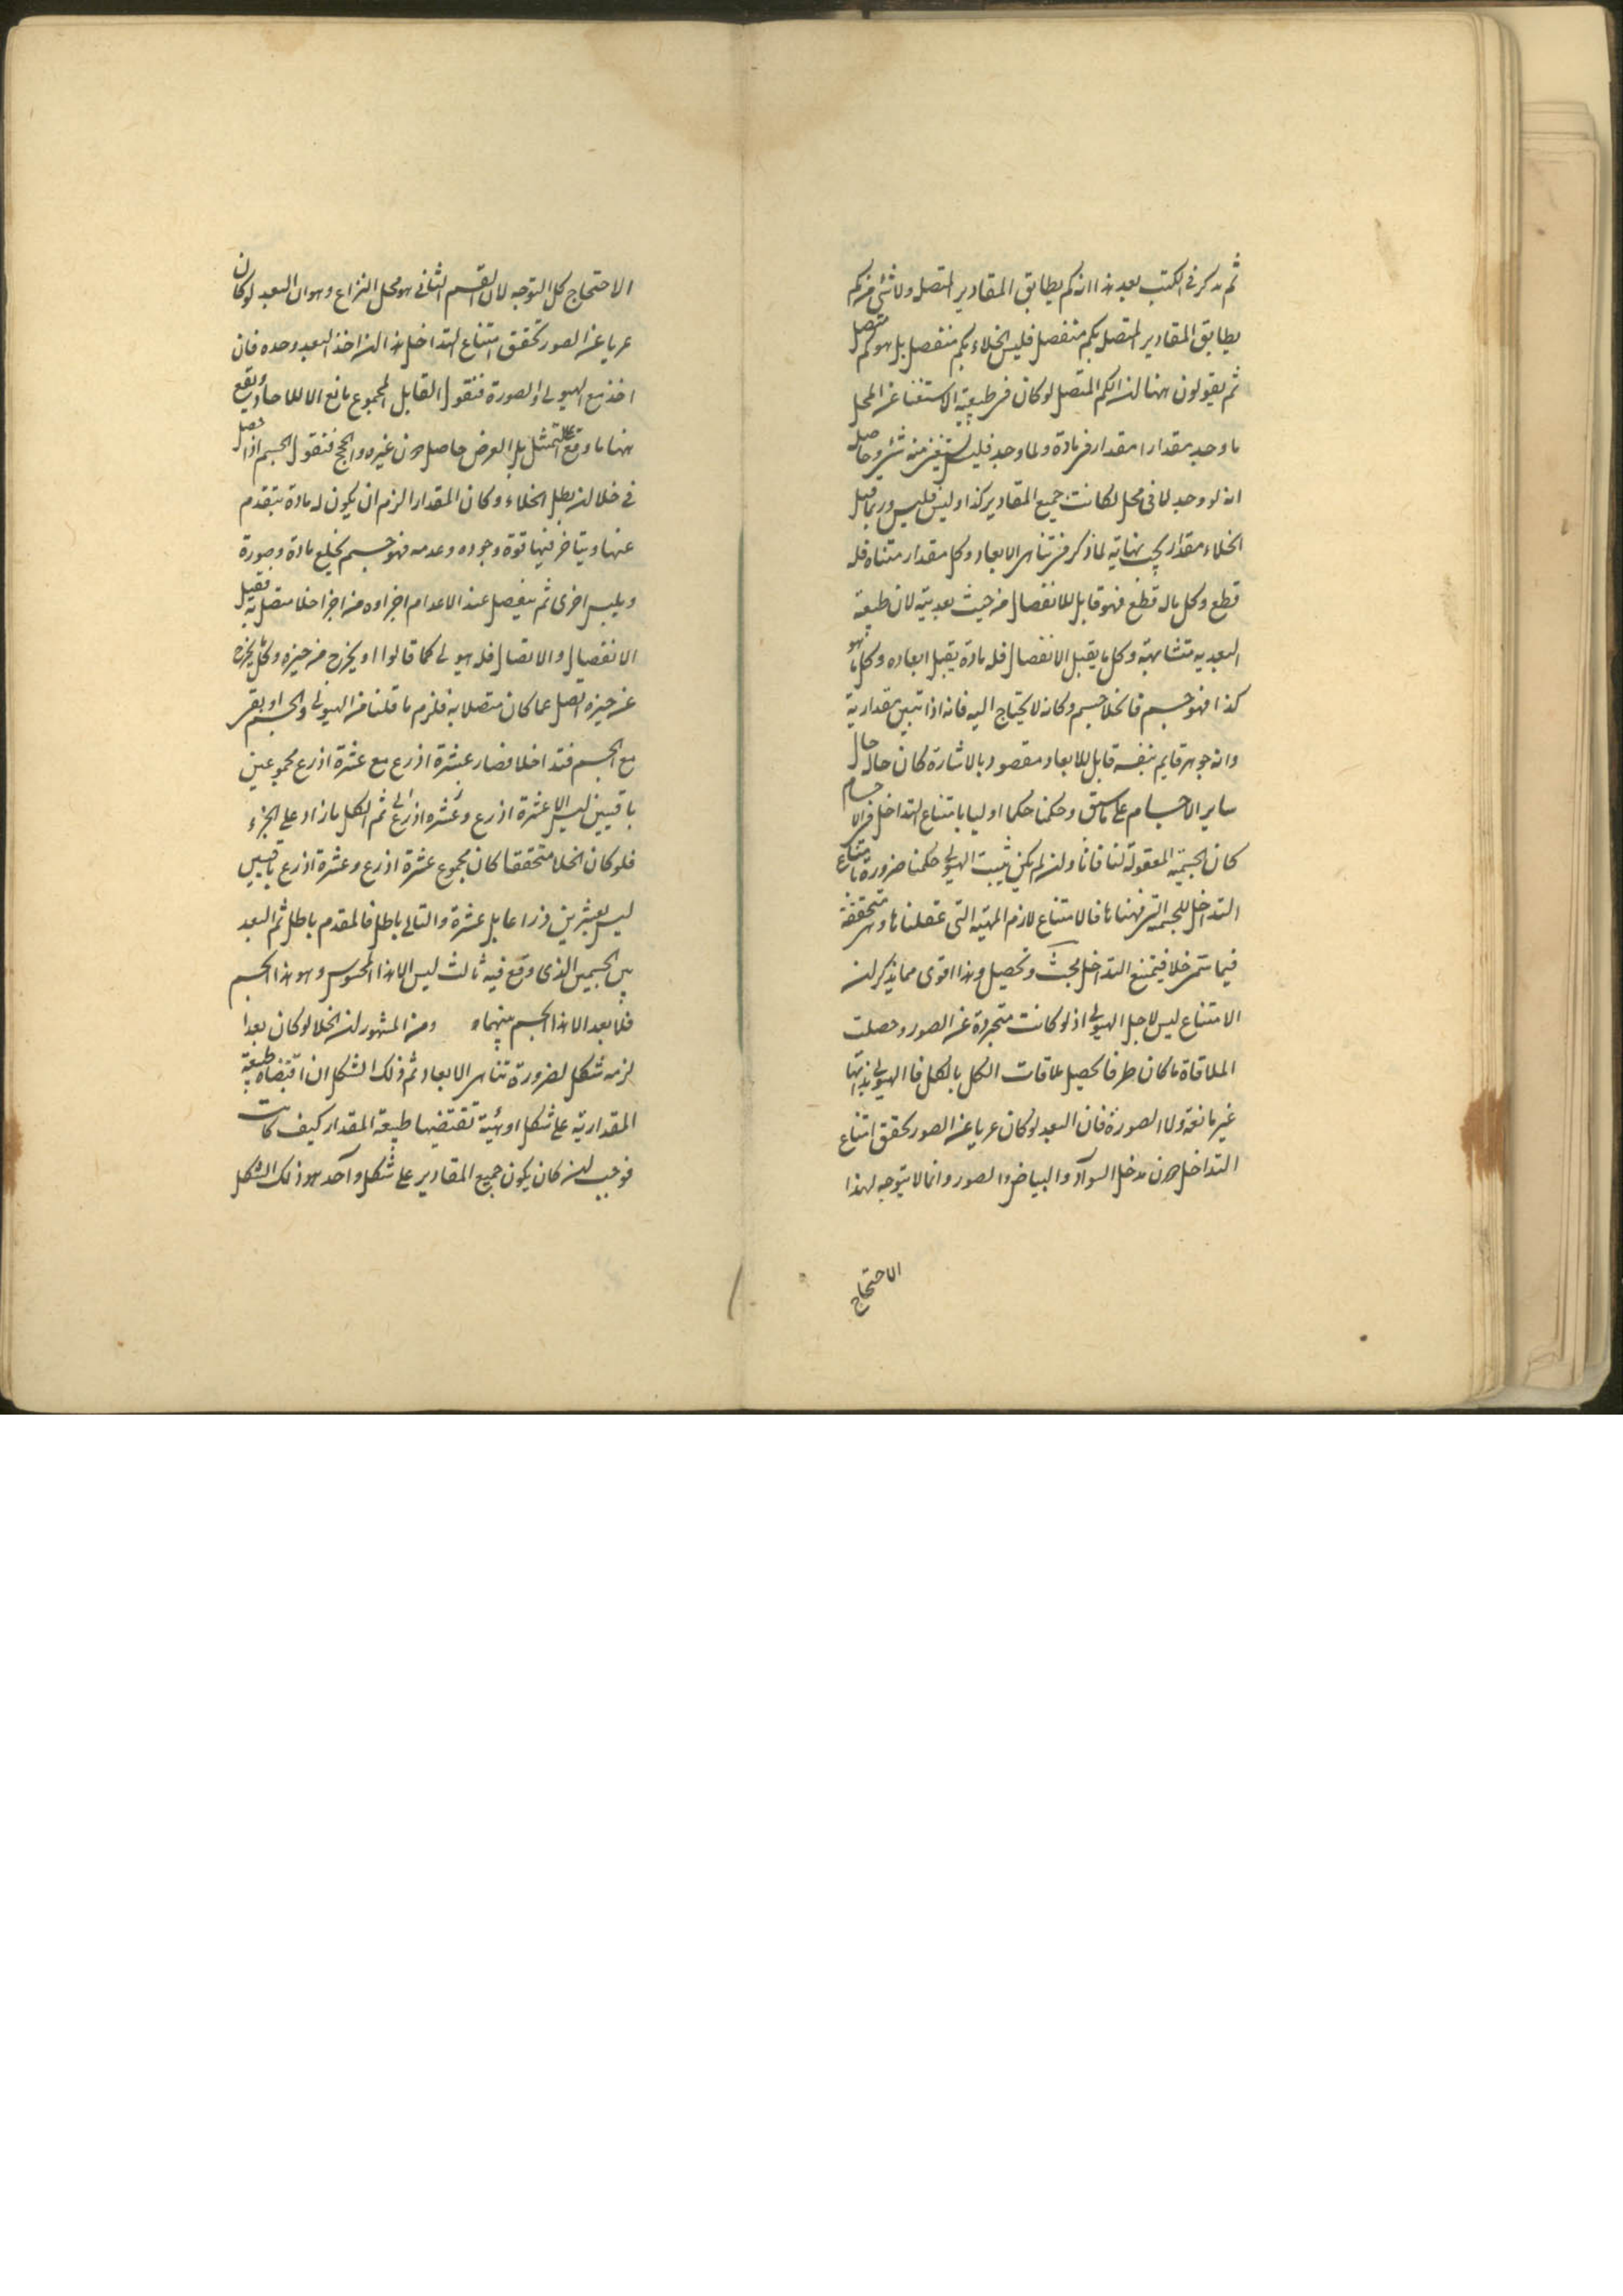 ثم يذكر فى الكتب بعد هذا انه كم يطابق المقادير المتصل ولا شئ من كم
يطابق المقادير المتصل بكم منفصل فليس الخلاء بكم منفصل بل هو كم متصل
ثم يقولون ههنا ان الكم المتصل لو كان فى طبيعته الاستغنا عن المحل
ما وجد مقدارا مقدار فى مادة ولما وجد فليس يستغنى منه شئ وحاصله
انه لو وجد لا فى محل لكانت جميع المقادير كذا وليس فليس وربما قيل
الخلاء مقدار يجب نهايته لما ذكر من تناهى الابعاد وكل مقدار متناه فله
قطع وكل ما له قطع فهو قابل للانفصال من حيث بعديته لان طبيعة
البعديه متشابهة وكل ما يقبل الانفصال فله مادة يقبل ابعاده وكل ما هو
كذا فهو جسم فالخلا جسم وكانه لا يحتاج اليه فانه اذا تبين مقداريته
وانه جوهر قايم بنفسه قابل للابعاد مقصود بالاشارة كان حاله حال
ساير الاجسام على ما سبق وحكمنا حكما اوليا بامتناع التداخل فى الاجسام
كان الجسمية المعقولة لنا فانا وان لم يكن يثبت الهيولى حكمنا ضرورة بامتناع
التداخل للجسمية التى فهمناها فالامتناع لازم المهية التى عقلناها وهى متحققة
فيما سمى خلا فيمتنع التداخل بحث وتحصيل وهذا اقوى مما يذكر ان
الامتناع ليس لاجل الهيولى اذ لو كانت متجردة عن الصور وحصلت
الملاقاة ما كان طرفا يحصل ملاقات الكل بالكل فالهيولى بذاتها
غير مانعة ولا الصورة فان البعد لو كان عريا عن الصور تحقق امتناع
التداخل دون مدخل السواد والبياض والصور وانما لا يتوجه لهذا
الاحتجاج
الاحتجاج كل التوجه لان القسم الثانى هو محل النزاع وهو ان البعد لو كان
عريا عن الصور تحقق امتناع التداخل هذا ان اخذ البعد وحده فان
اخذ مع الهيولى والصورة فنقول القابل المجموع مانع الا للاحاد ويقع
ههنا ما وقع على التمثل بل العرض حاصل دون غيره والحجج فنقول الجسم اذا حصل
فى خلا ان بطل الخلاء وكان المقدار الزم ان يكون له مادة يتقدم
عنها ويتاخر فيها قوة وجوده وعدمه فهو جسم يخلع مادة وصورة
ويلبس اخرى ثم ينفصل عند الاعدام اجزاوه من اجزا خلا متصل به فقبل
الانفصال والاتصال فله هيولى كما قالوا او يخرج من حيزه وكل ما يخرج
عن حيزه انفصل عما كان متصلا به فلزم ما قلنا من الهيولى والجسم او بقى
مع الجسم فتداخلا فصار عشرة اذرع مع عشرة اذرع مجموعين
باقيين ليس الا عشرة اذرع وعشرة اذرع ثم الكل ما زاد على الجزء
فلو كان الخلا متحققا كان مجموع عشرة اذرع وعشرة اذرع باقيين
ليس بعشرين ذراعا بل عشرة والتالى باطل فالمقدم باطل ثم البعد
بين الجسمين الذى وقع فيه ثالث ليس الا هذا المحسوس وهو هذا الجسم
فلا بعد الا هذا الجسم بينهما ه ومن المشهور ان الخلا لو كان بعدا
لزمه شكل لضرورة تناهى الابعاد ثم ذلك الشكل ان اقتضاه طبيعة
المقدارية على شكل او هيئة تقتضيها طبيعة المقدار كيف كانت
فوجب ان كان يكون جميع المقادير على شكل واحد هو ذلك الشكل